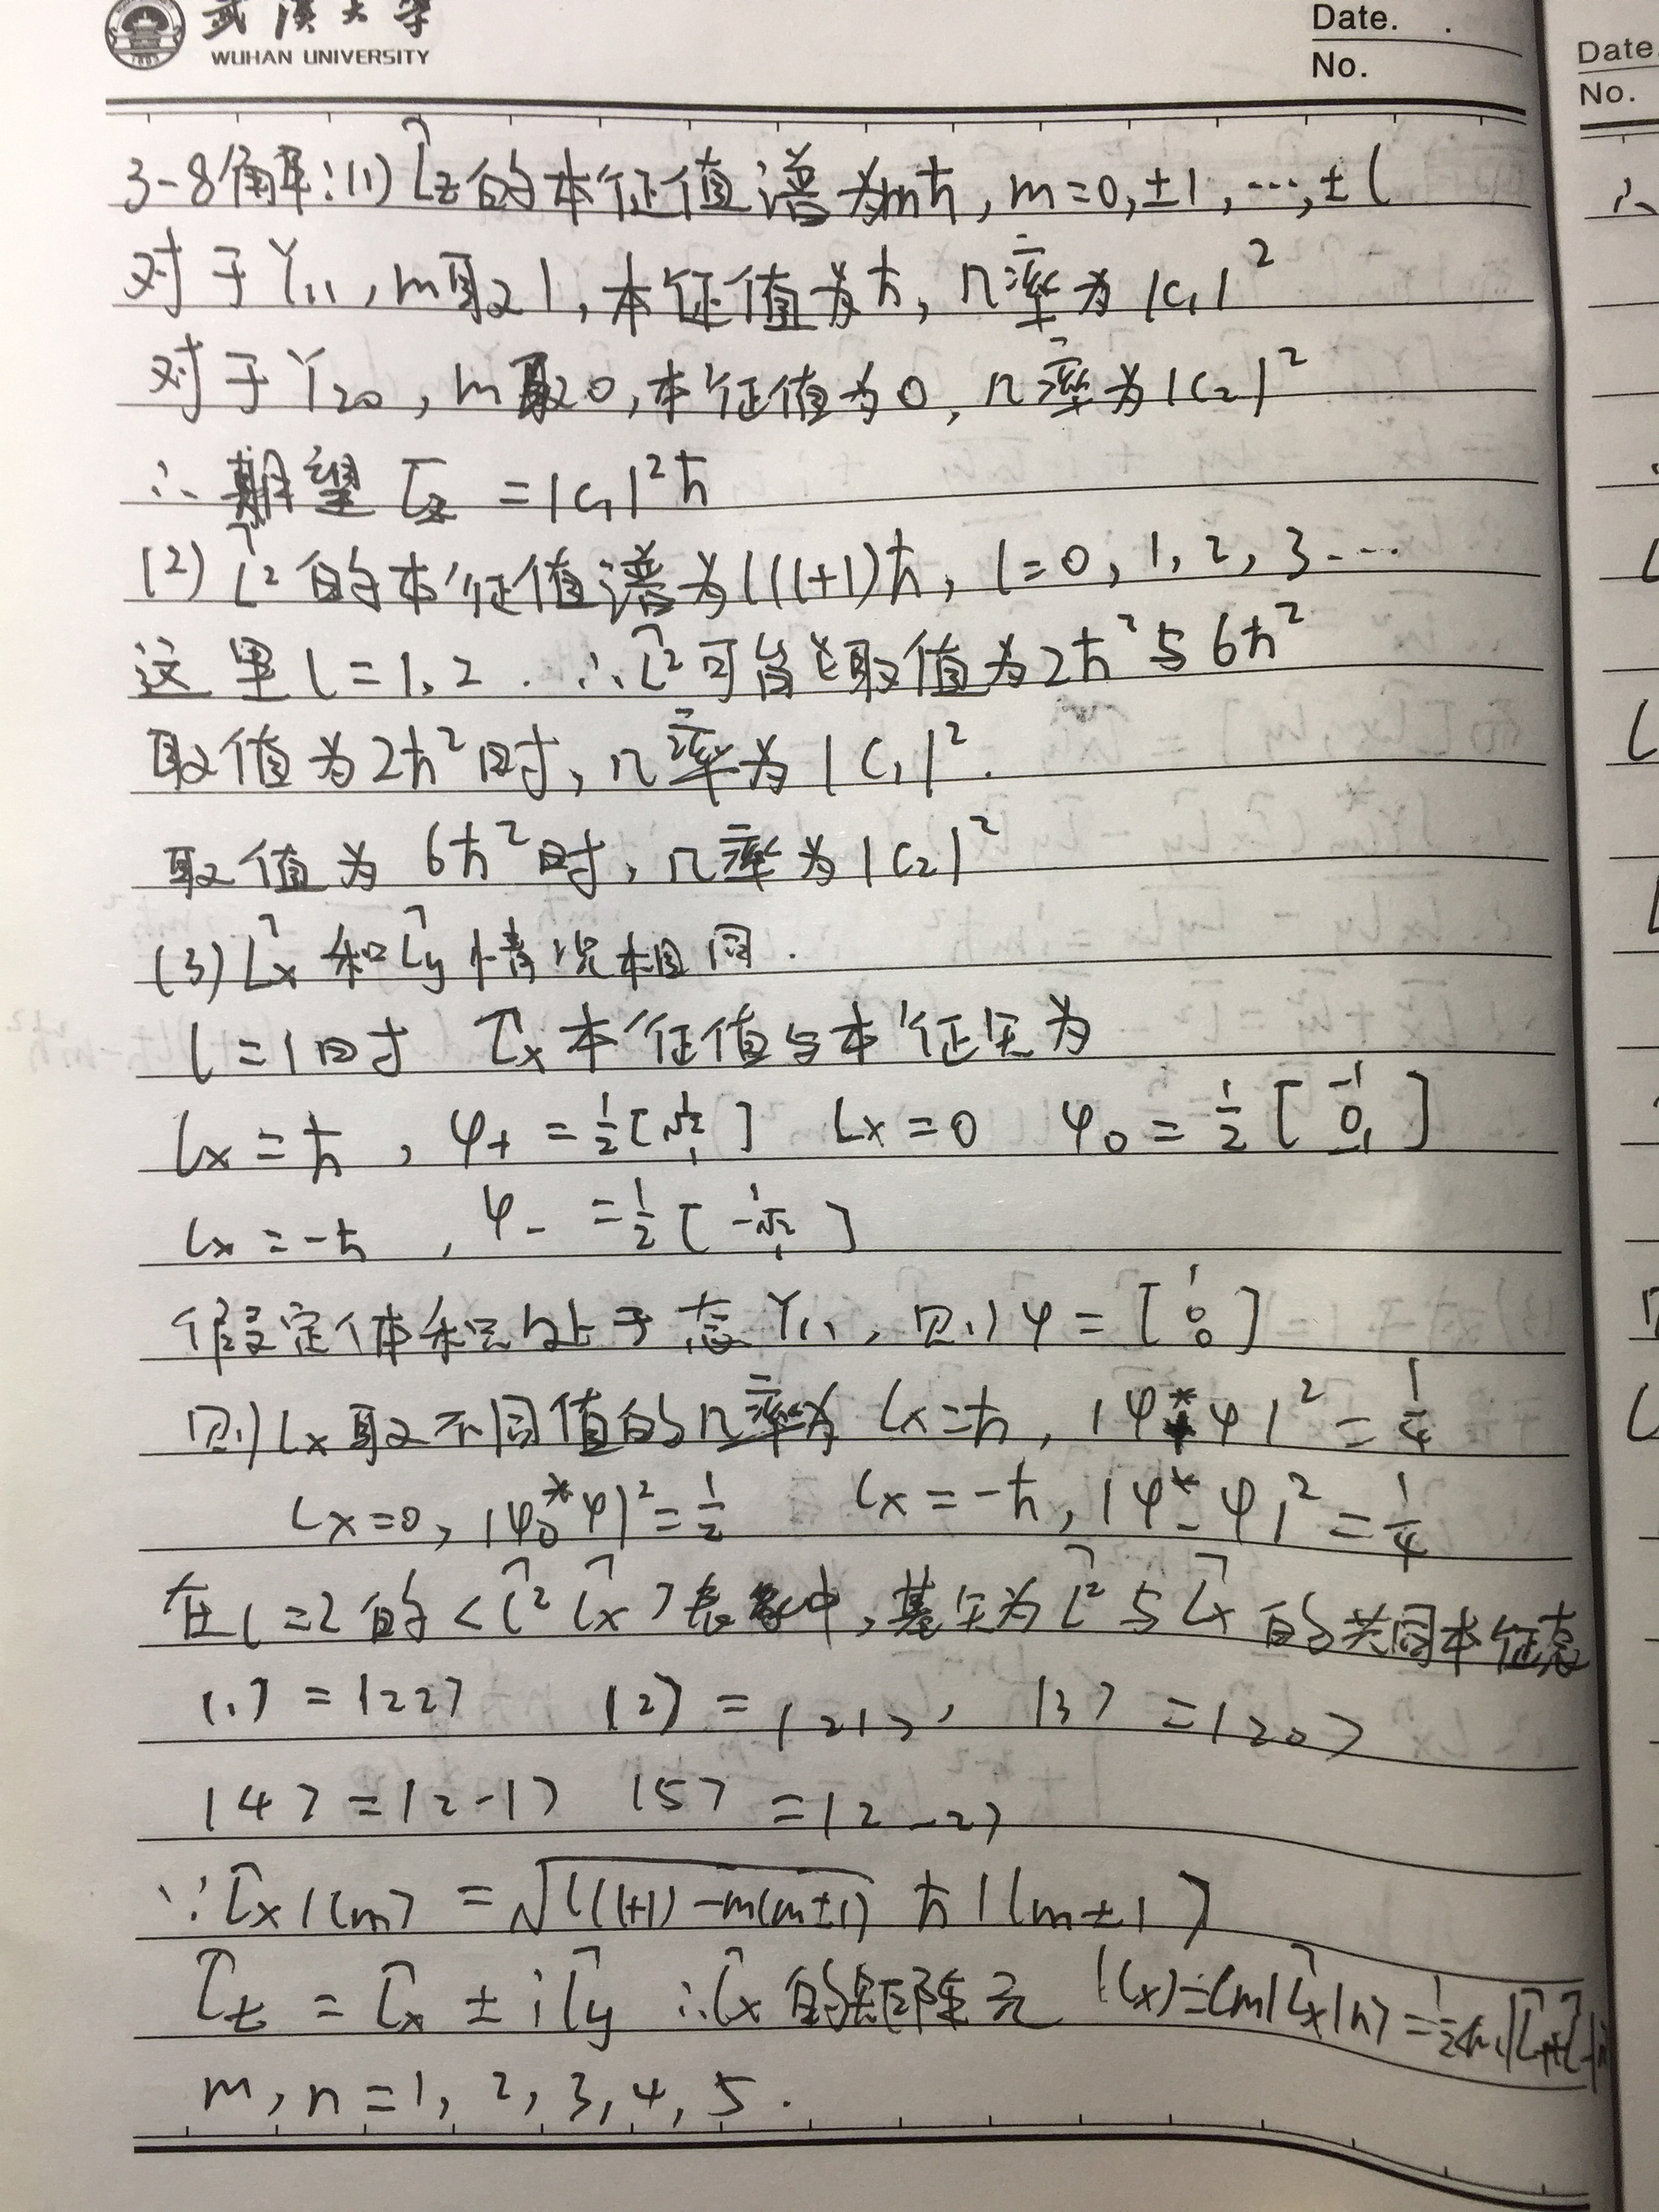 武漢大学
WUHAN UNIVERSITY
Date. .
No.
Date.
No.
3-8解:(1) L̂z的本征值谱为mħ, m=0,±1,…,±l
对于Y₁₁, m取1, 本征值为ħ, 几率为|C₁|²
对于Y₂₀, m取0, 本征值为0, 几率为|C₂|²
∴期望 L̄z =|C₁|²ħ
(2) L̂²的本征值谱为l(l+1)ħ, l=0, 1, 2, 3…
这里l=1, 2. ∴L̂²可能取值为2ħ²与6ħ²
取值为2ħ²时, 几率为|C₁|².
取值为 6ħ²时, 几率为|C₂|²
(3) L̂x 和 L̂y 情况相同.
l=1时 L̂x本征值与本征矢为
Lx=ħ, φ₊=½[1 √2 1] Lx=0 φ₀=½[-1 0 1]
Lx=-ħ, φ₋=½[1 -√2 1]
假定体系处于态Y₁₁, 则φ=[1 0 0]
则Lx取不同值的几率为 Lx=ħ, |φ₊*φ|²=¼
Lx=0, |φ₀*φ|²=½ Lx=-ħ, |φ₋*φ|²=¼
在l=2的<L̂² L̂x>表象中,基矢为L̂²与L̂x的共同本征态
|1>=|22> |2>=|21>, |3>=|20>
|4>=|2-1> |5>=|2-2>
∵L̂x|lm>=√(l(l+1)-m(m±1)) ħ|lm±1>
L̂± = L̂x ± iL̂y ∴L̂x的矩阵元 (Lx)=<m|L̂x|n>=½<m|L̂₊+L̂₋|n>
m, n=1, 2, 3, 4, 5.